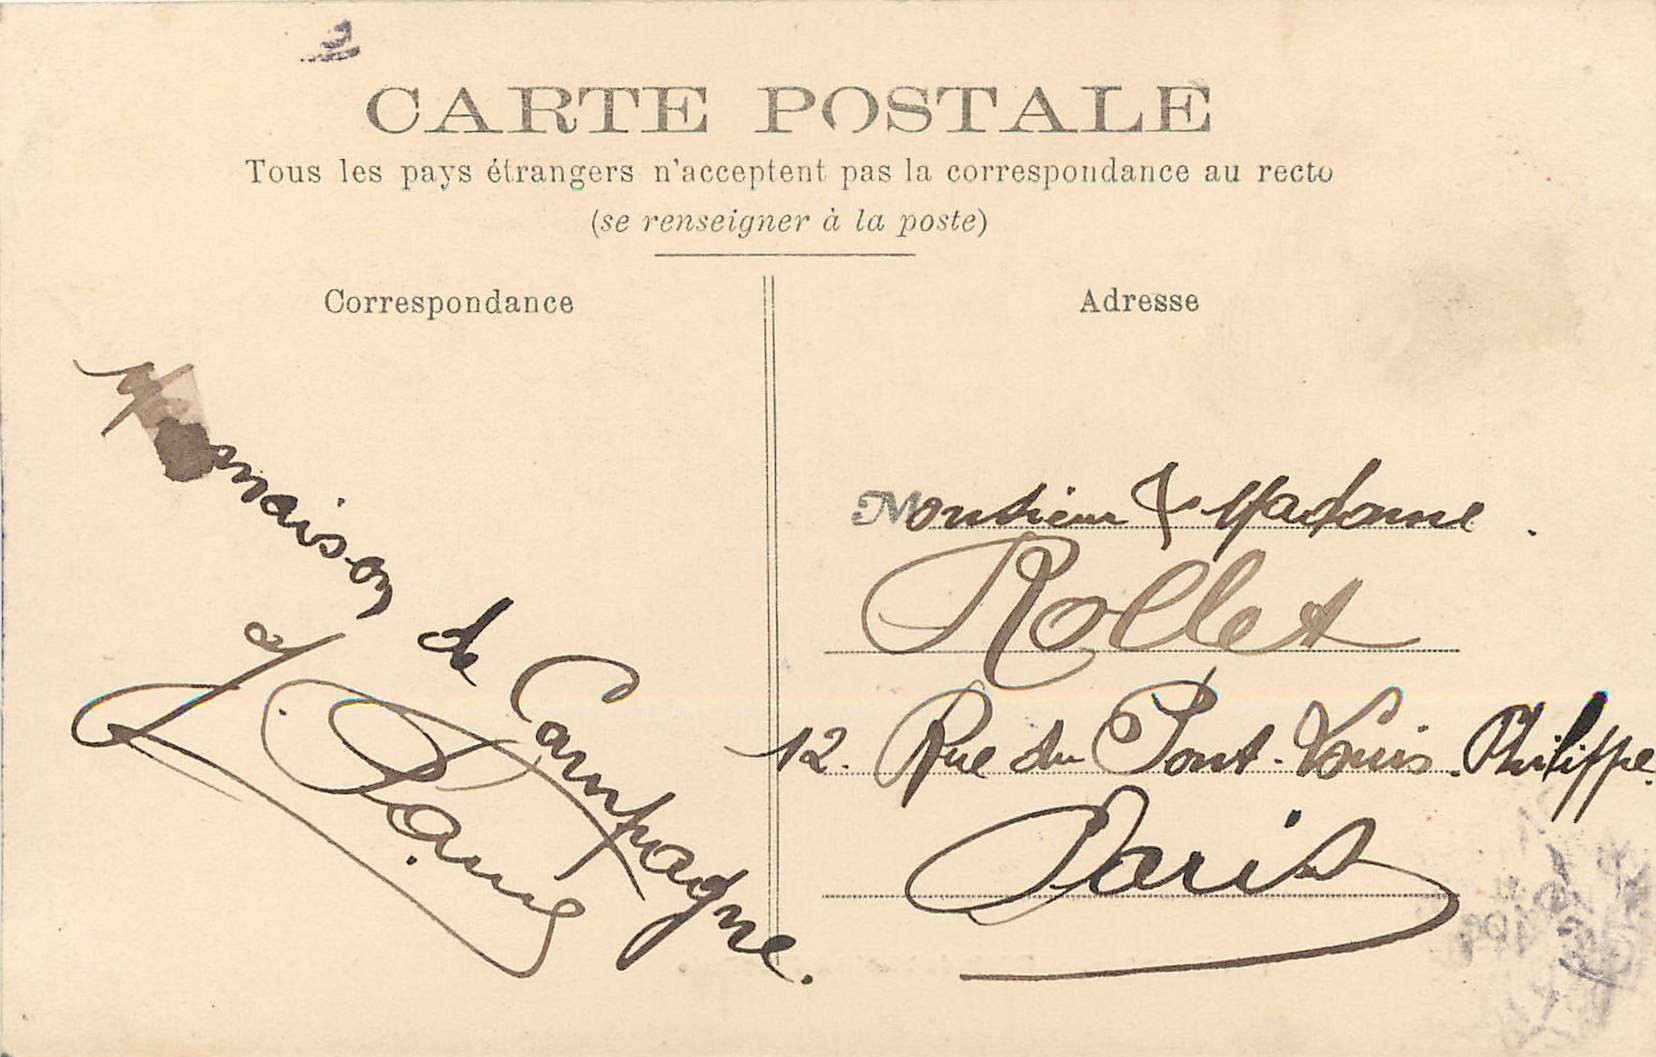 CARTE POSTALE
Tous les pays étrangers n'acceptent pas la correspondance au recto
(se renseigner à la poste)
Correspondance
Adresse
maison de Campagne.
Monsieur & Madame
Rollet
12. Rue du Pont-Louis-Philippe.
Paris